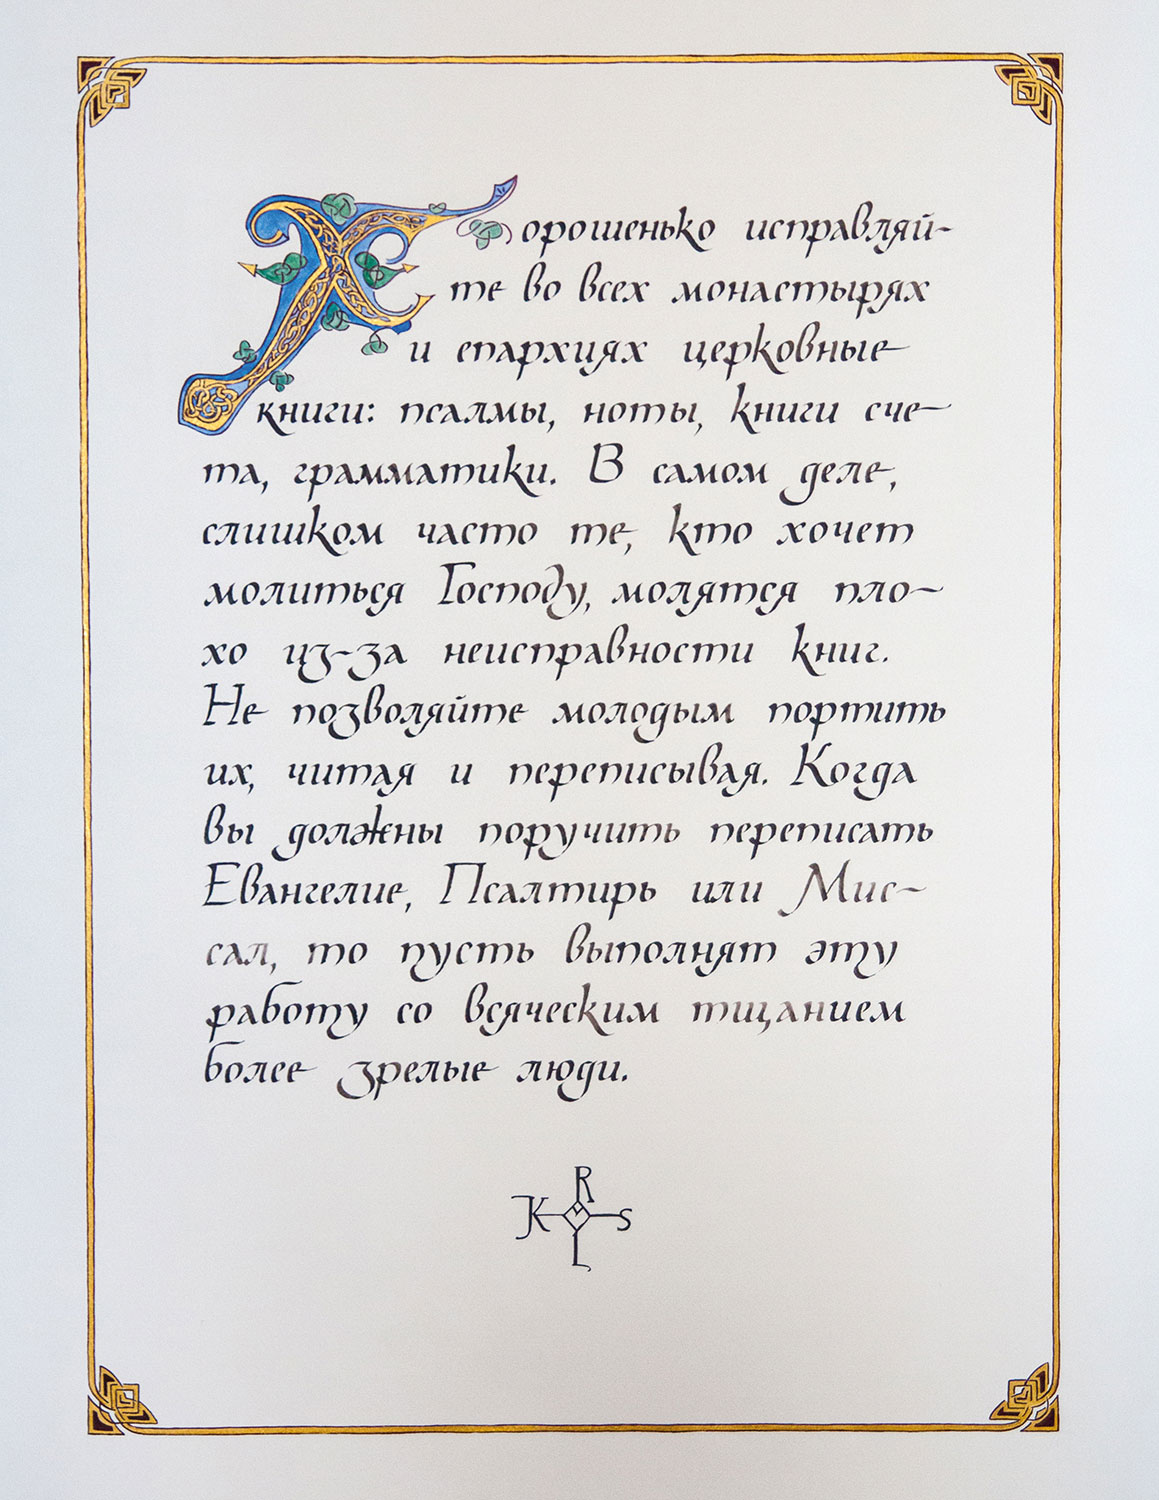 Хорошенько исправляй-
те во всех монастырях
и епархиях церковные
книги: псалмы, ноты, книги сче-
та, грамматики. В самом деле,
слишком часто те, кто хочет
молиться Господу, молятся пло-
хо из-за неисправности книг.
Не позволяйте молодым портить
их, читая и переписывая. Когда
вы должны поручить переписать
Евангелие, Псалтирь или Мис-
сал, то пусть выполнят эту
работу со всяческим тщанием
более зрелые люди.
R
K S
L